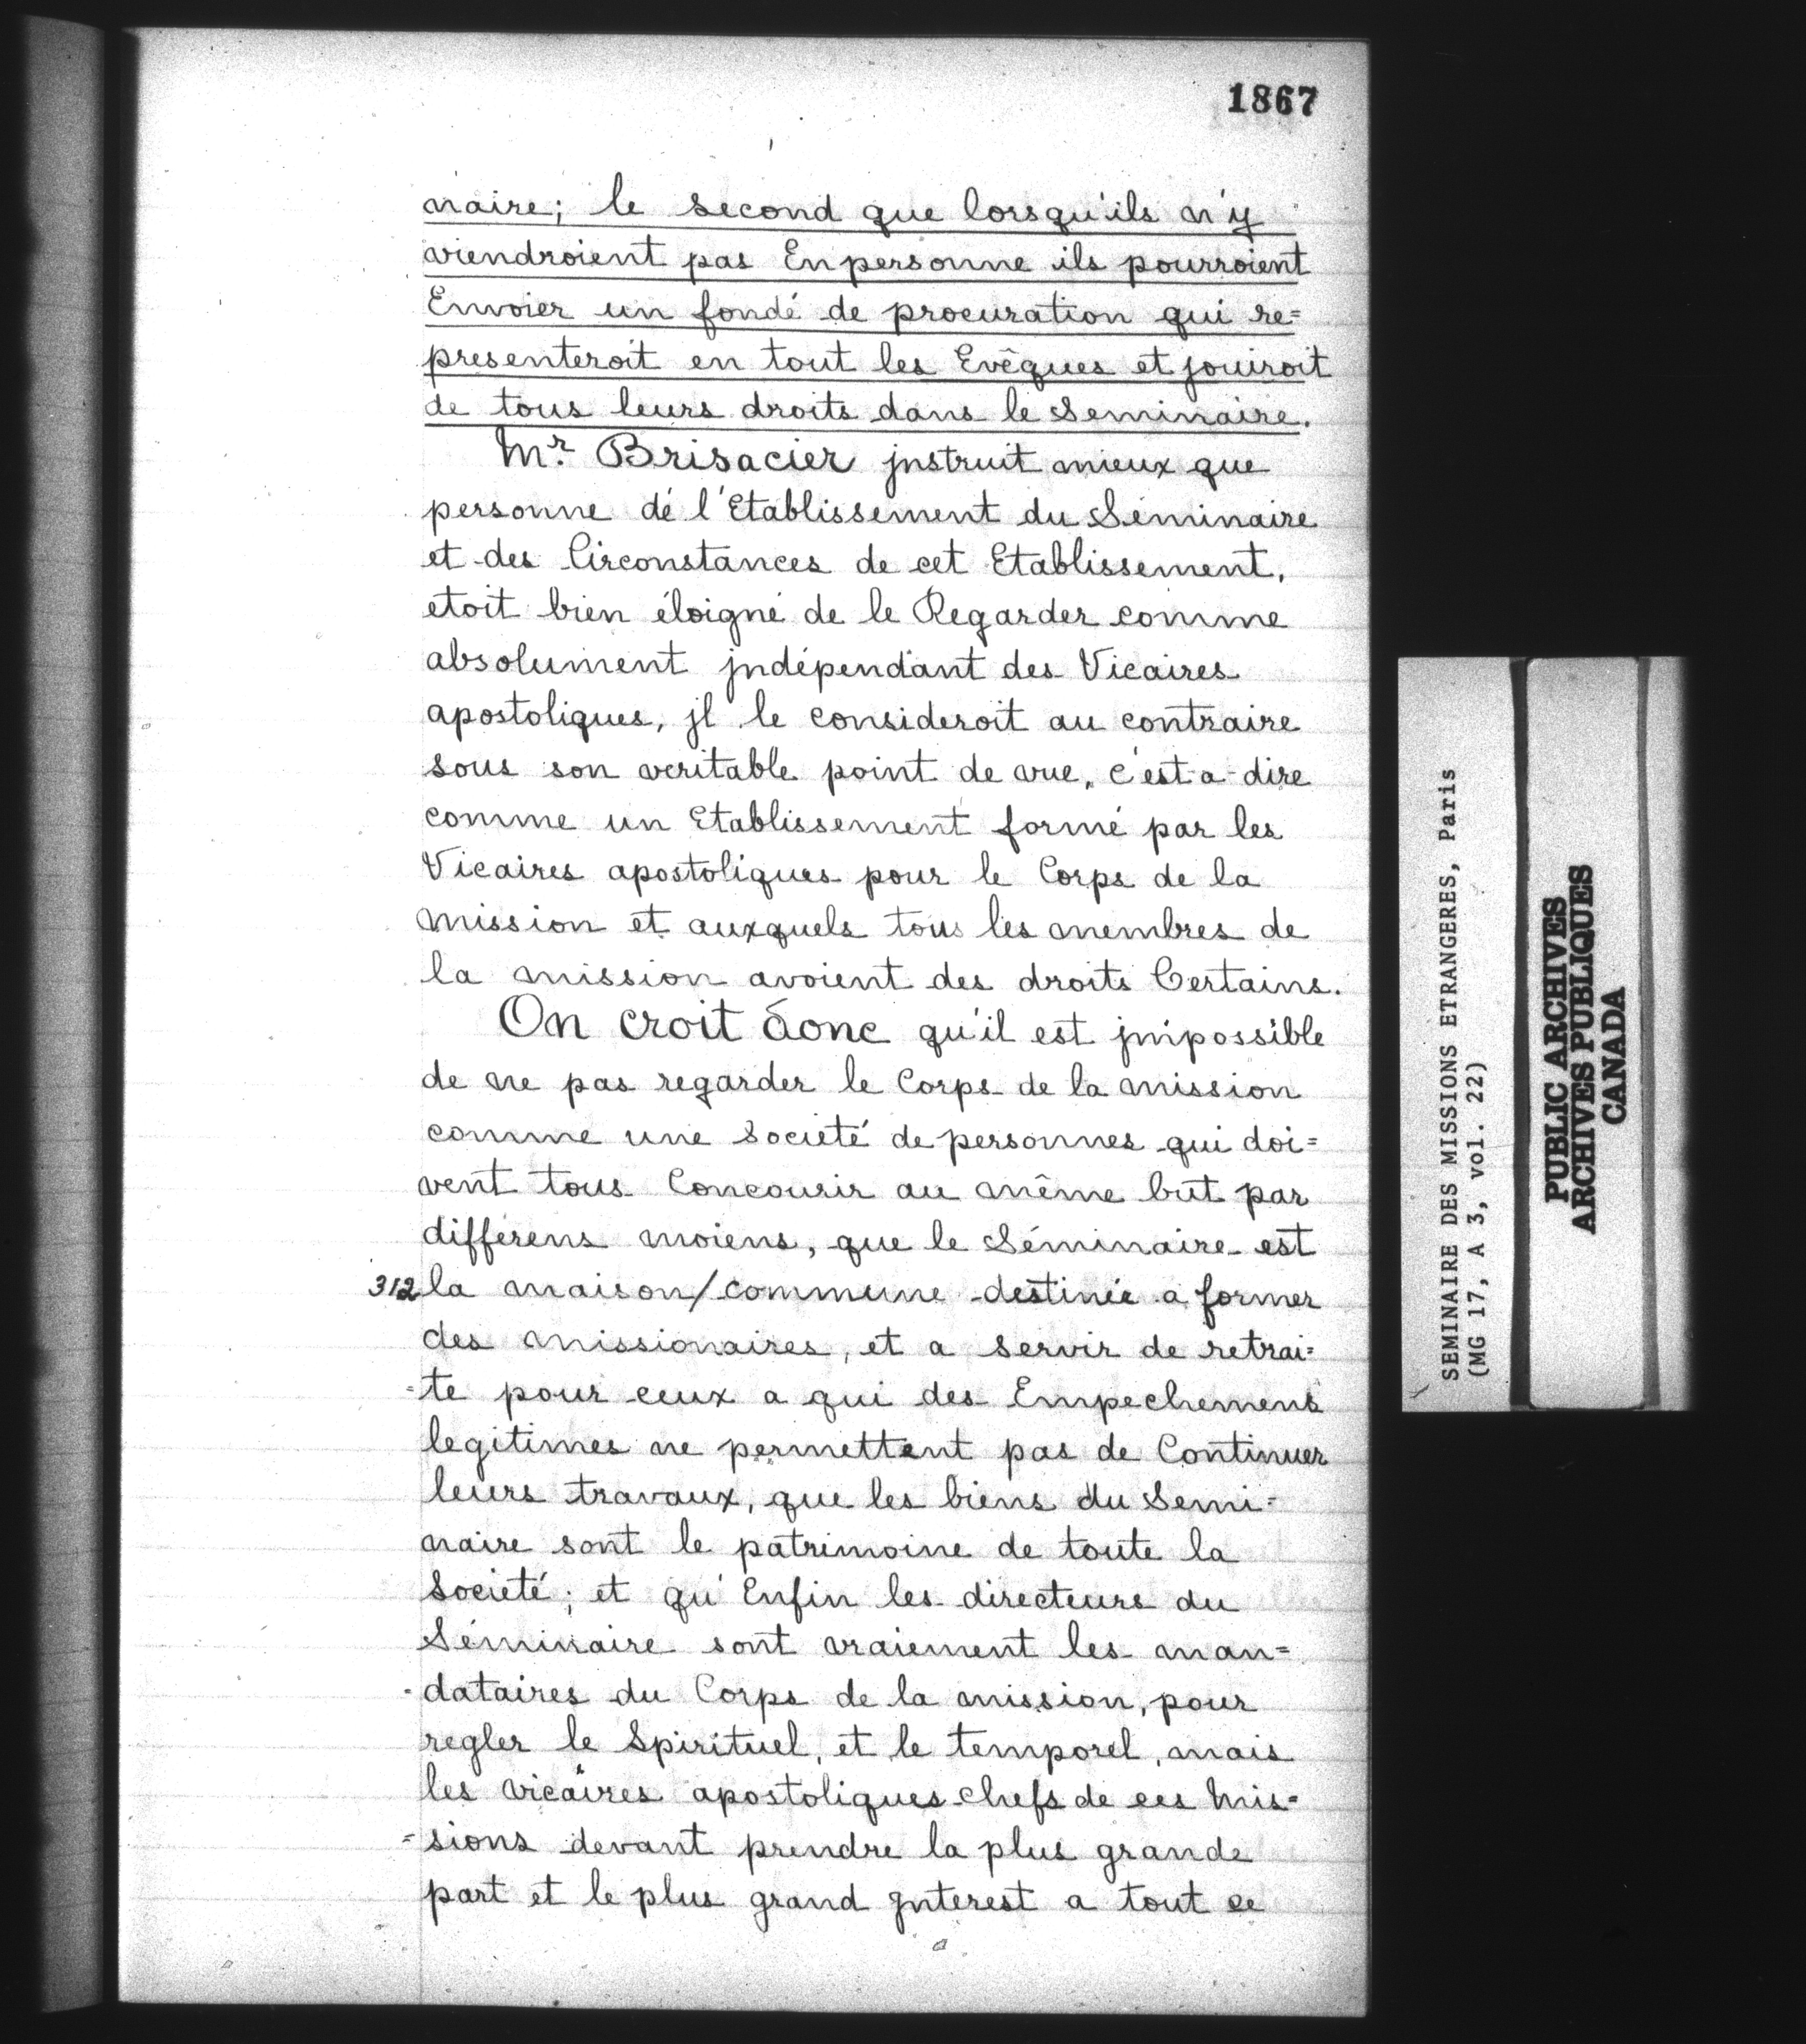 1867
naire; le second que lorsqu'ils n'y
viendroient pas Enpersonne ils pourroient
Envoier un fondé de procuration qui re=
presenteroit en tout les Evêques et jouiroit
de tous leurs droits dans le Seminaire.
Mr. Brisacier jnstruit mieux que
personne dé l'Etablissement du Séminaire
et des Circonstances de cet Etablissement,
etoit bien éloigné de le Regarder comme
absolument jndépendant des Vicaires
apostoliques, jl le consideroit au contraire
sous son veritable point de vue, c'est-a-dire
comme un Etablissement formé par les
Vicaires apostoliques pour le Corps de la
Mission et auxquels tous les membres de
la mission avoient des droits Certains.
On croit donc qu'il est jmpossible
de ne pas regarder le Corps de la mission
comme une Societé de personnes qui doi=
vent tous Concourir au même but par
différens moiens, que le Séminaire est
312 la maison/commune destinée a former
des missionaires, et a servir de retrai=
=te pour ceux a qui des Empechemens
legitimes ne permettent pas de Continuer
leurs travaux, que les biens du Semi=
naire sont le patrimoine de toute la
Societé; et qu'Enfin les directeurs du
Séminaire sont vraiement les man=
=dataires du Corps de la mission, pour
regler le Spirituel, et le temporel, mais
les vicaires apostoliques chefs de ces Mis=
=sions devant prendre la plus grande
part et le plus grand jnterest a tout ce
SEMINAIRE DES MISSIONS ETRANGERES, Paris
(MG 17, A 3, vol. 22)
PUBLIC ARCHIVES
ARCHIVES PUBLIQUES
CANADA